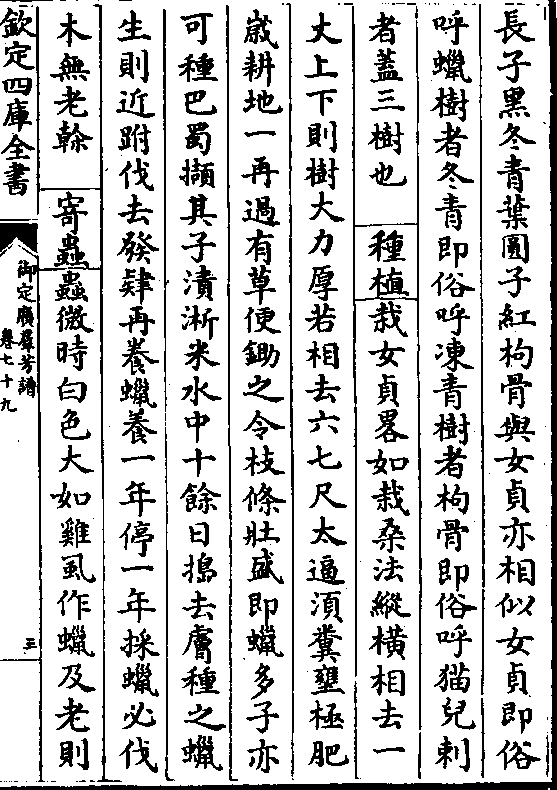 長子黑冬青葉圓子紅枸骨與女貞亦相似女貞即俗
呼蠟樹者冬青即俗呼凍青樹者枸骨即俗呼猫兒刺
者蓋三樹也　種植栽女貞畧如栽桑法縱橫相去一
丈上下則樹大力厚若相去六七尺太逼湏糞壅極肥
嵗耕地一再過有草便鋤之令枝條壯盛即蠟多子亦
可種巴蜀擷其子漬淅米水中十餘日搗去膚種之蠟
生則近跗伐去發肄再養蠟養一年停一年採蠟必伐
木無老榦　寄蟲蟲微時白色大如雞虱作蠟及老則
欽定四庫全書
御定廣羣芳譜
卷七十九
三